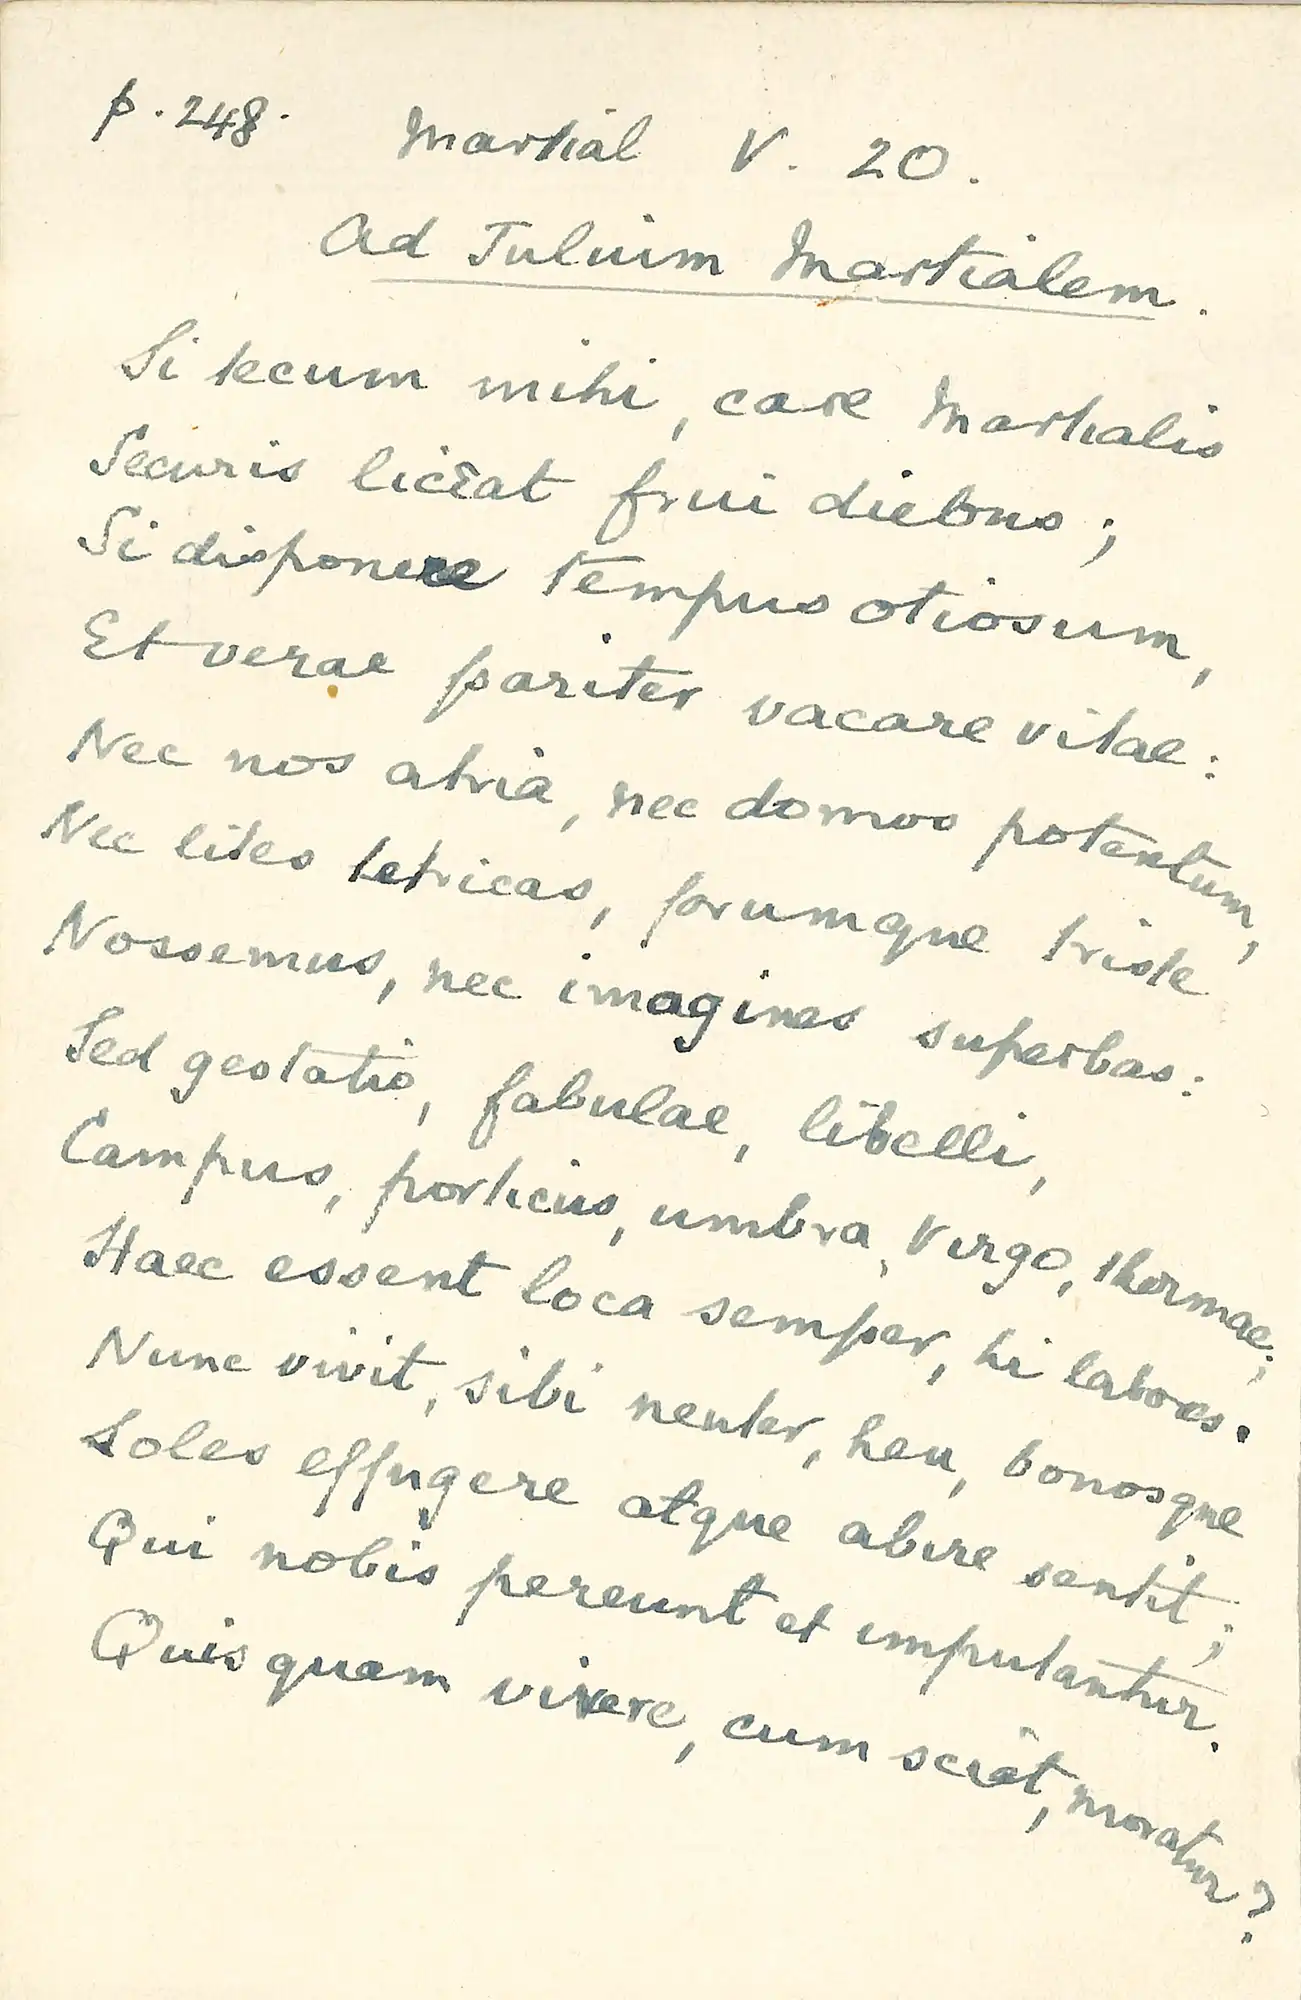 p. 248. Martial V. 20.
Ad Julium Martialem.
Si tecum mihi, care Martialis
Securis liceat frui diebus;
Si disponere tempus otiosum,
Et verae pariter vacare vitae:
Nec nos atria, nec domos potentum,
Nec lites tetricas, forumque triste
Nossemus, nec imagines superbas:
Sed gestatio, fabulae, libelli,
Campus, porticus, umbra, Virgo, thermae;
Haec essent loca semper, hi labores.
Nunc vivit, sibi neuter, heu, bonosque
Soles effugere atque abire sentit;
Qui nobis pereunt et imputantur.
Quisquam vivere, cum sciat, moratur?